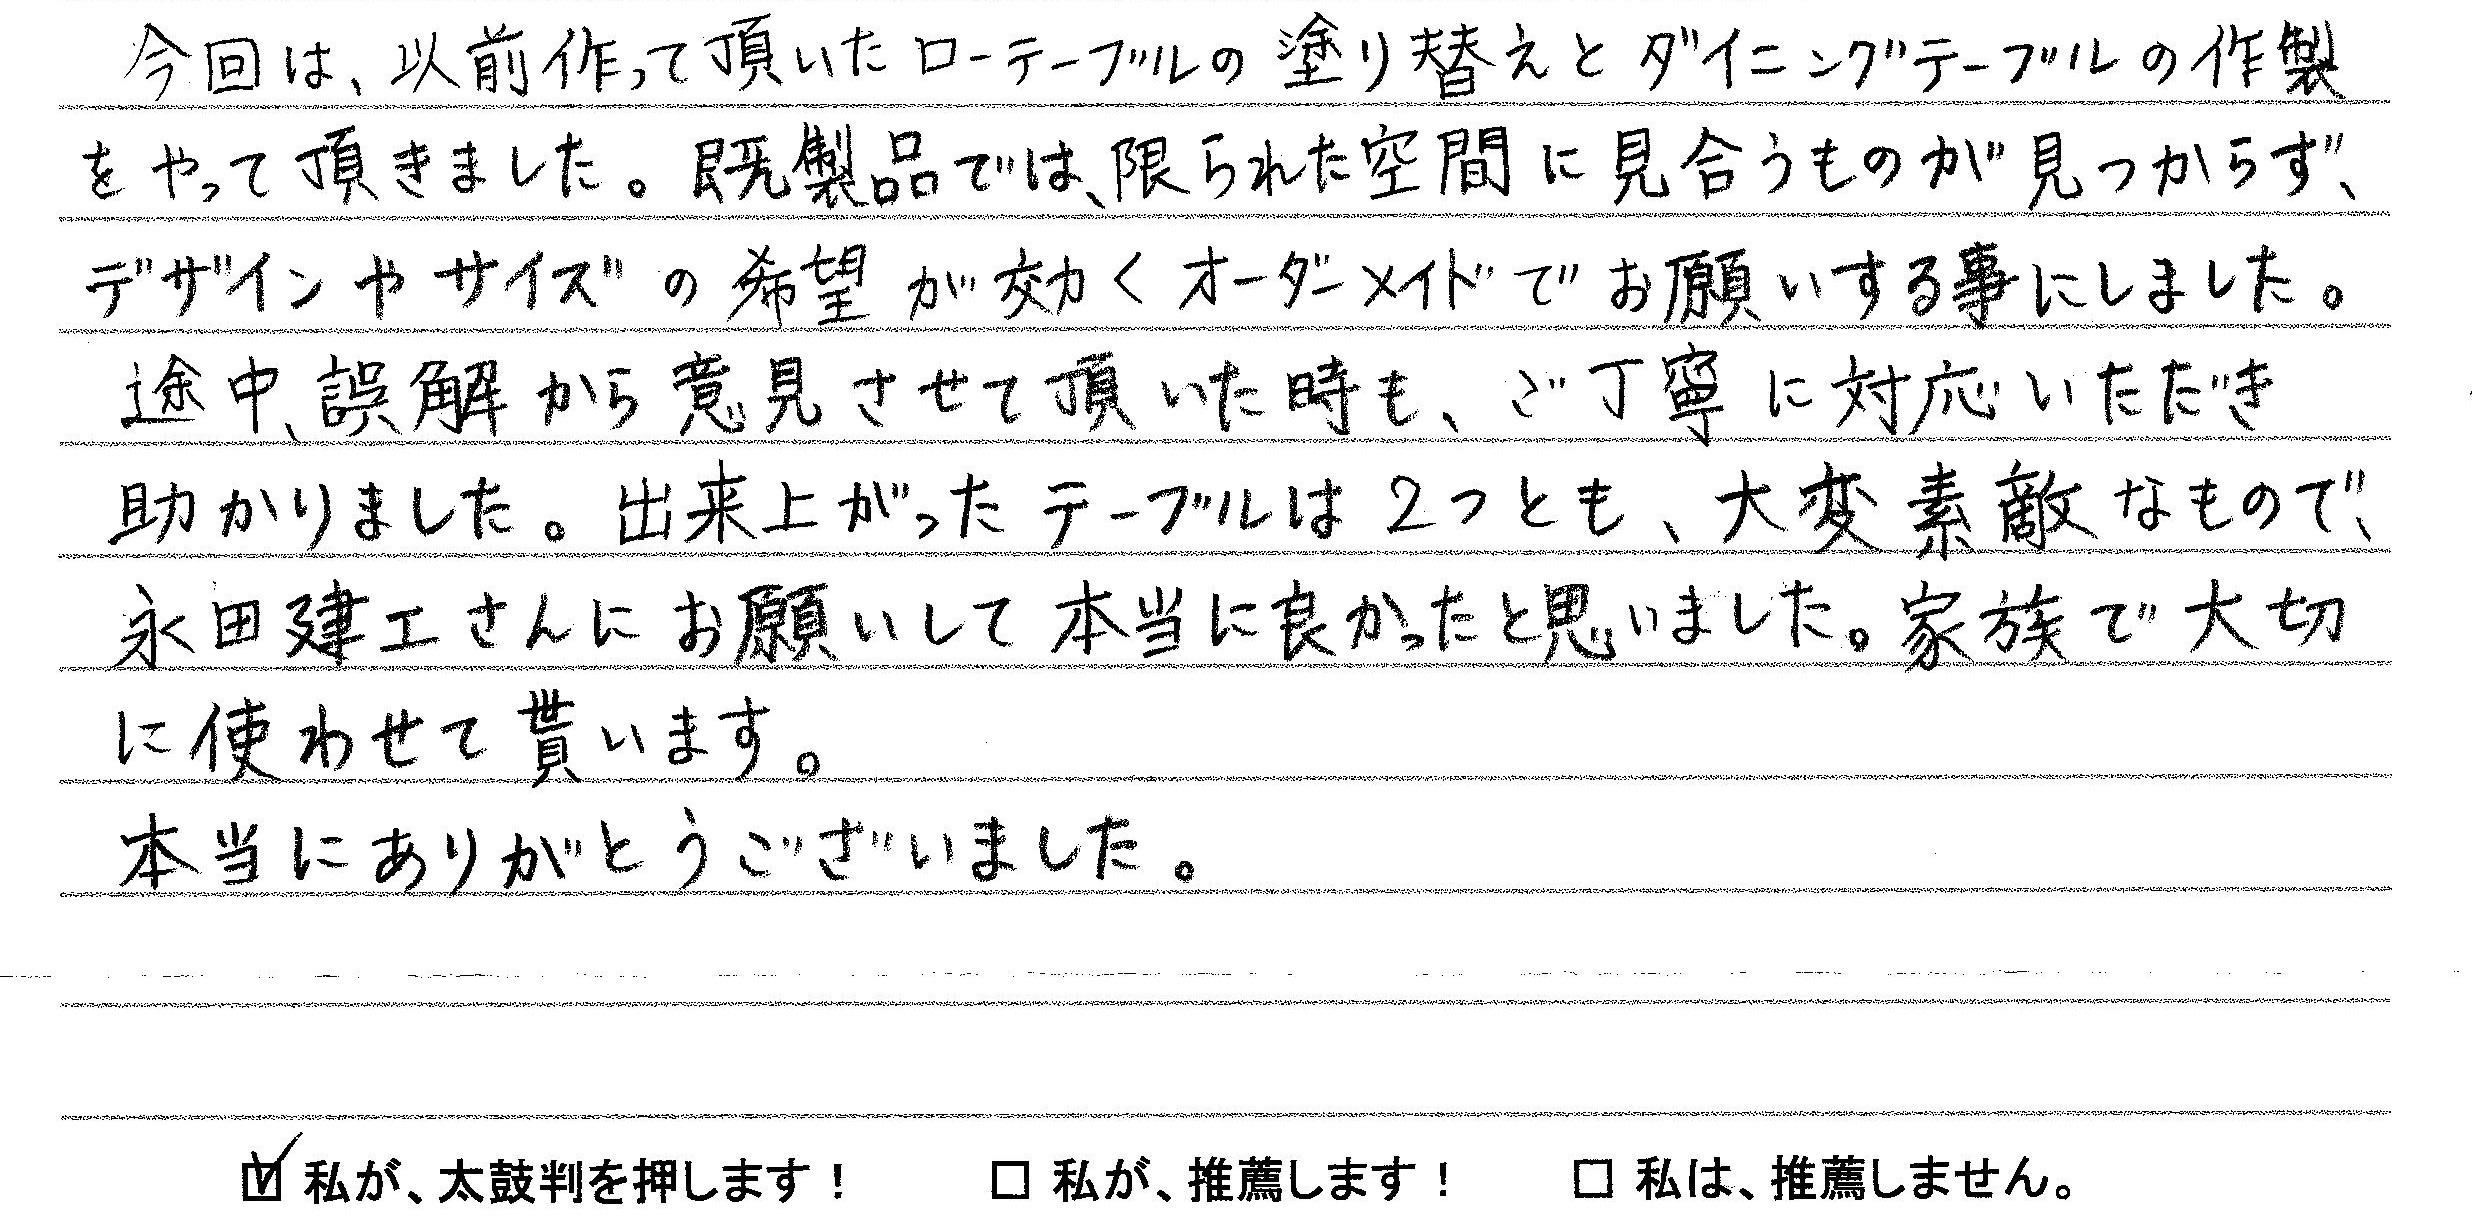 今回は、以前作って頂いたローテーブルの塗り替えとダイニングテーブルの作製
をやって頂きました。既製品では、限られた空間に見合うものが見つからず、
デザインやサイズの希望が効くオーダーメイドでお願いする事にしました。
途中、誤解から意見させて頂いた時も、ご丁寧に対応いただき
助かりました。出来上がったテーブルは2つとも、大変素敵なもので、
永田建工さんにお願いして本当に良かったと思いました。家族で大切
に使わせて貰います。
本当にありがとうございました。
☑ 私が、太鼓判を押します! □ 私が、推薦します! □ 私は、推薦しません。